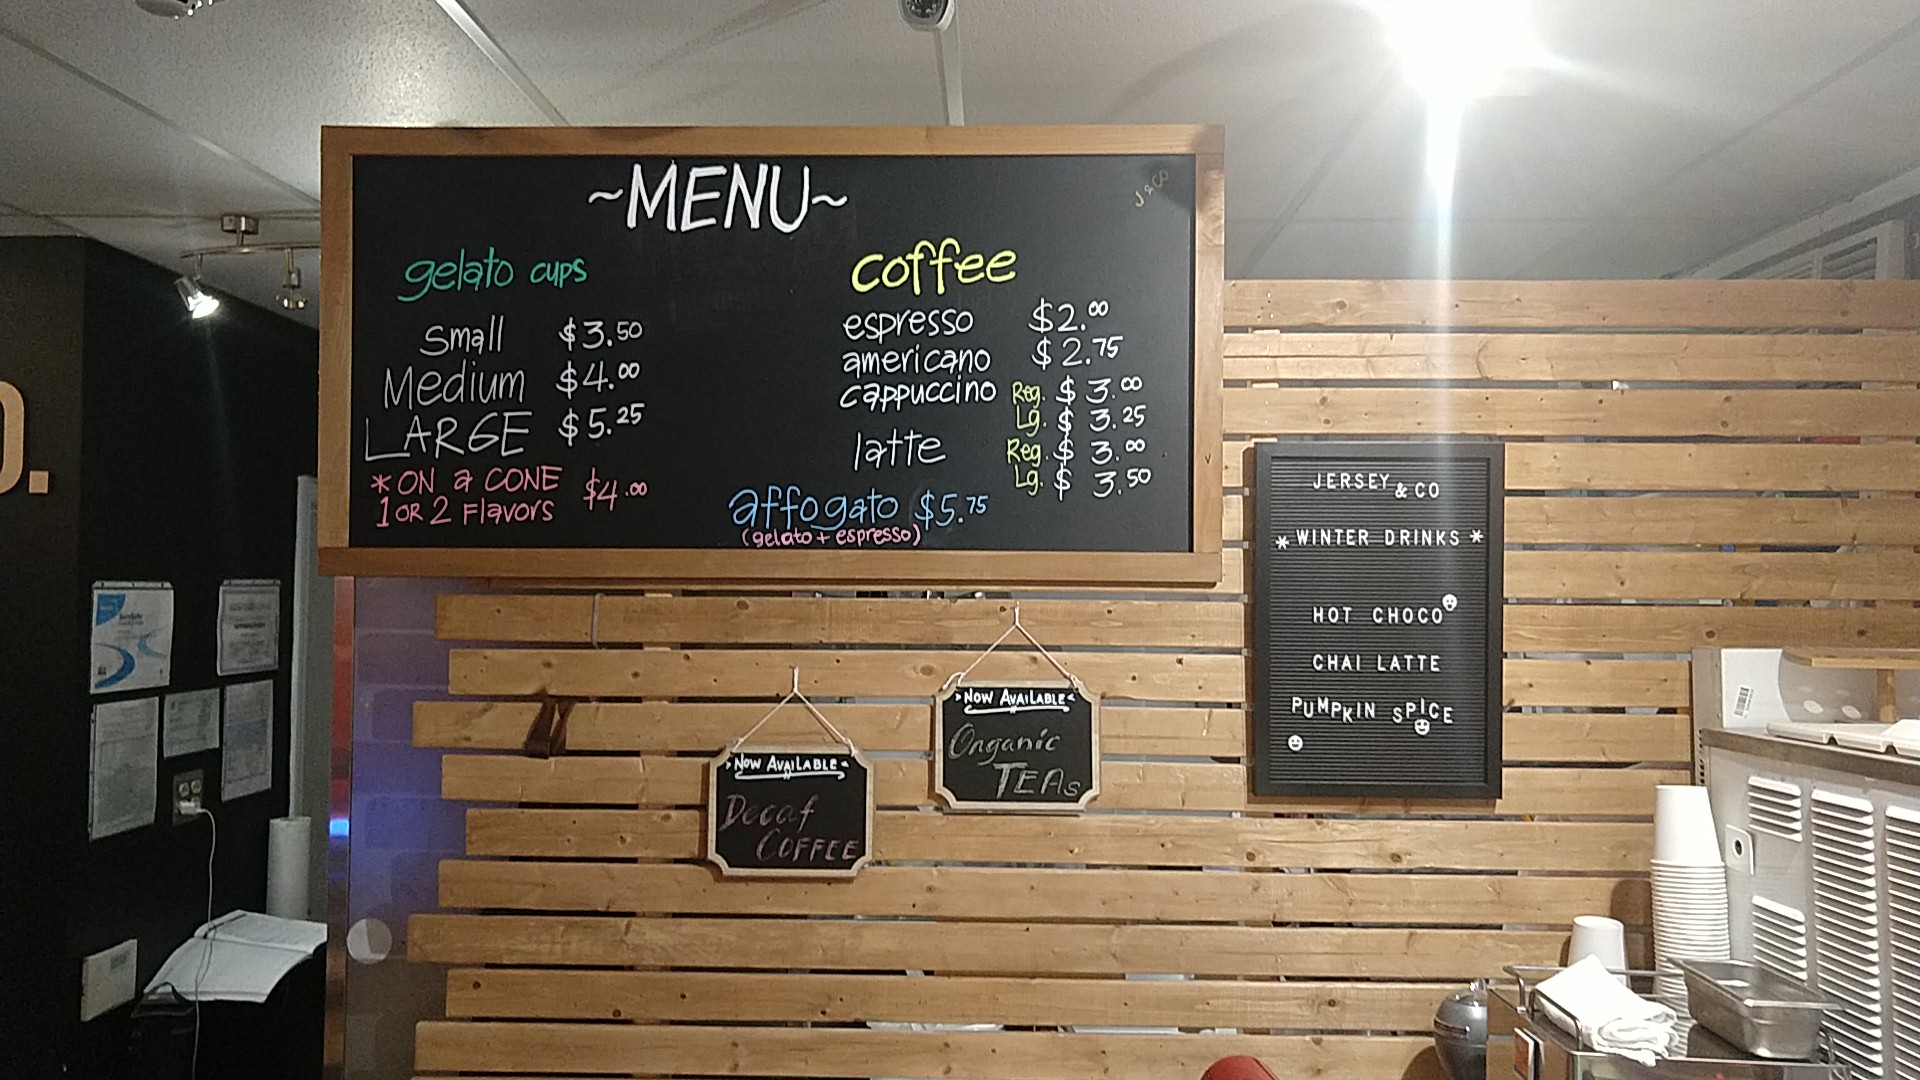 ~MENU~
J&CO
gelato cups
Small $3.50
Medium $4.00
LARGE $5.25
*ON a CONE $4.00
1 OR 2 Flavors
coffee
espresso $2.00
americano $2.75
cappuccino Reg. $3.00
Lg. $3.25
latte Reg. $3.00
Lg. $3.50
affogato $5.75
(gelato + espresso)
JERSEY & CO
*WINTER DRINKS*
HOT CHOCO
CHAI LATTE
PUMPKIN SPICE
NOW AVAILABLE
Organic
TEAs
NOW AVAILABLE
Decaf
COFFEE